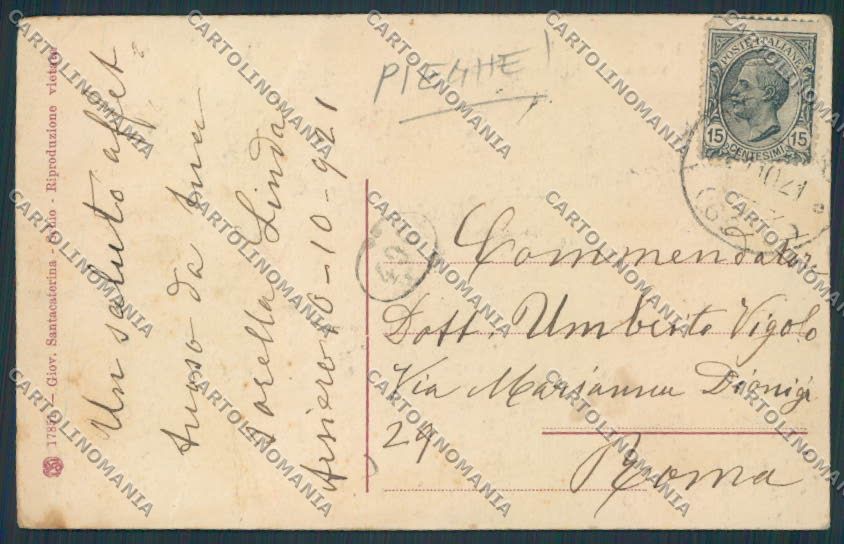 PIEGHE!
POSTE ITALIANE
15 15
CENTESIMI
10 21
Un saluto affet
tuoso da tua
sorella Linda
Arsiero 10-10-921
Commendatore
Dott. Umberto Vigolo
Via Marianna Dionigi
29
Roma
Giov. Santacaterina - Riproduzione vietata
CARTOLINOMANIA